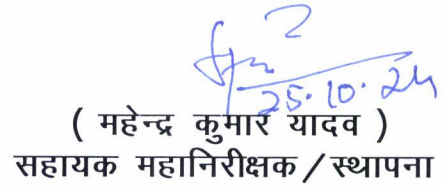 25.10.24
( महेन्द्र कुमार यादव )
सहायक महानिरीक्षक/स्थापना